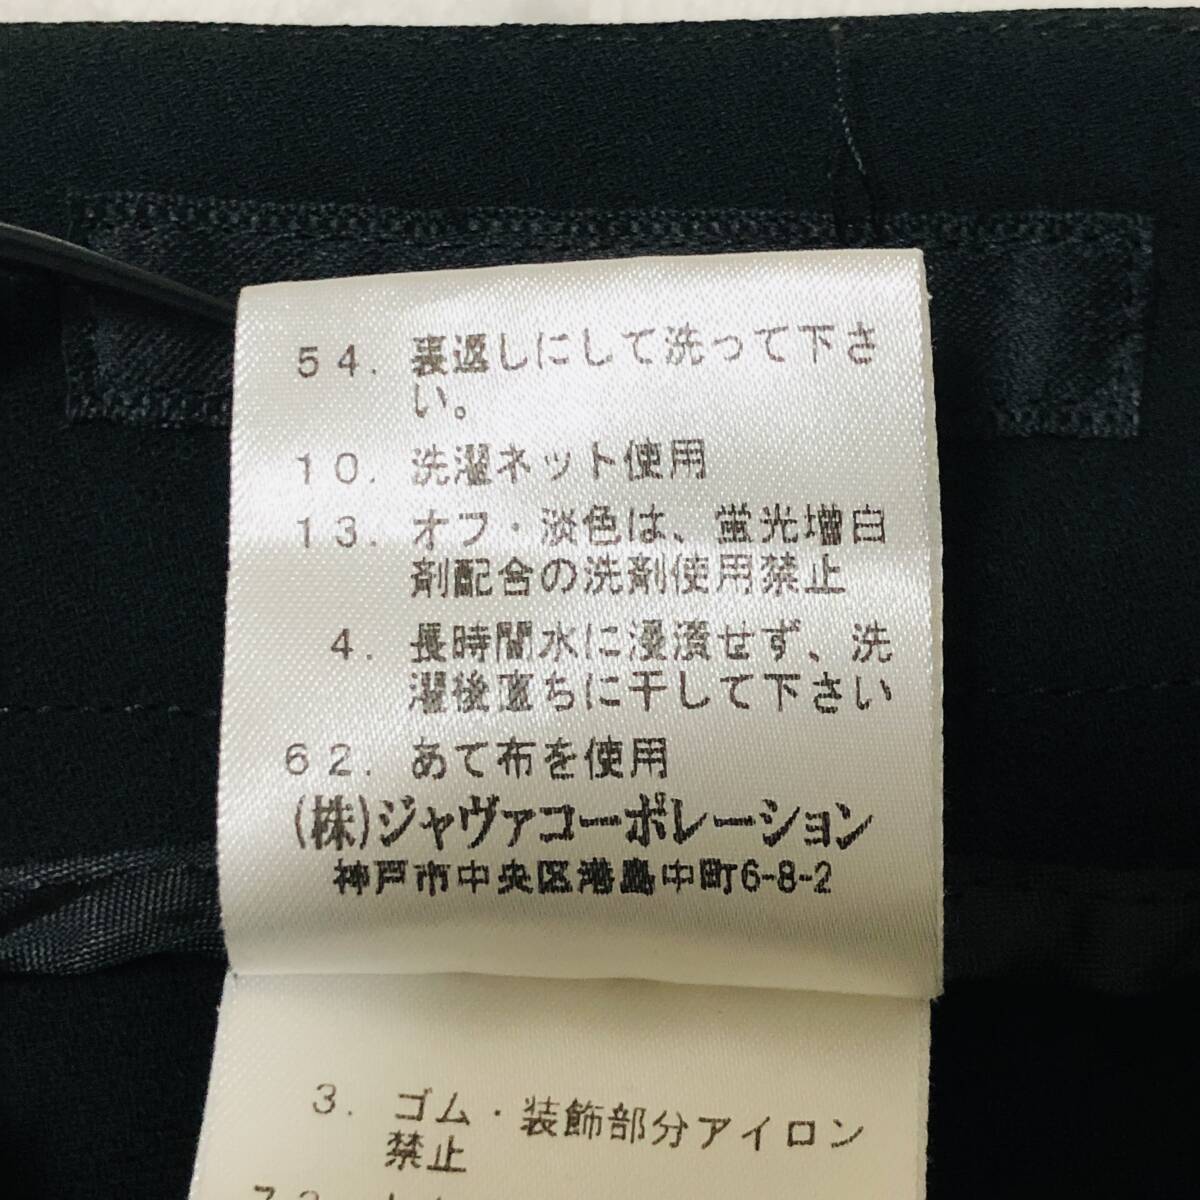 54. 裏返しにして洗って下さ
い。
10. 洗濯ネット使用
13. オフ・淡色は、蛍光増白
剤配合の洗剤使用禁止
4. 長時間水に浸漬せず、洗
濯後直ちに干して下さい
62. あて布を使用
(株)ジャヴァコーポレーション
神戸市中央区港島中町6-8-2
3. ゴム・装飾部分アイロン
禁止